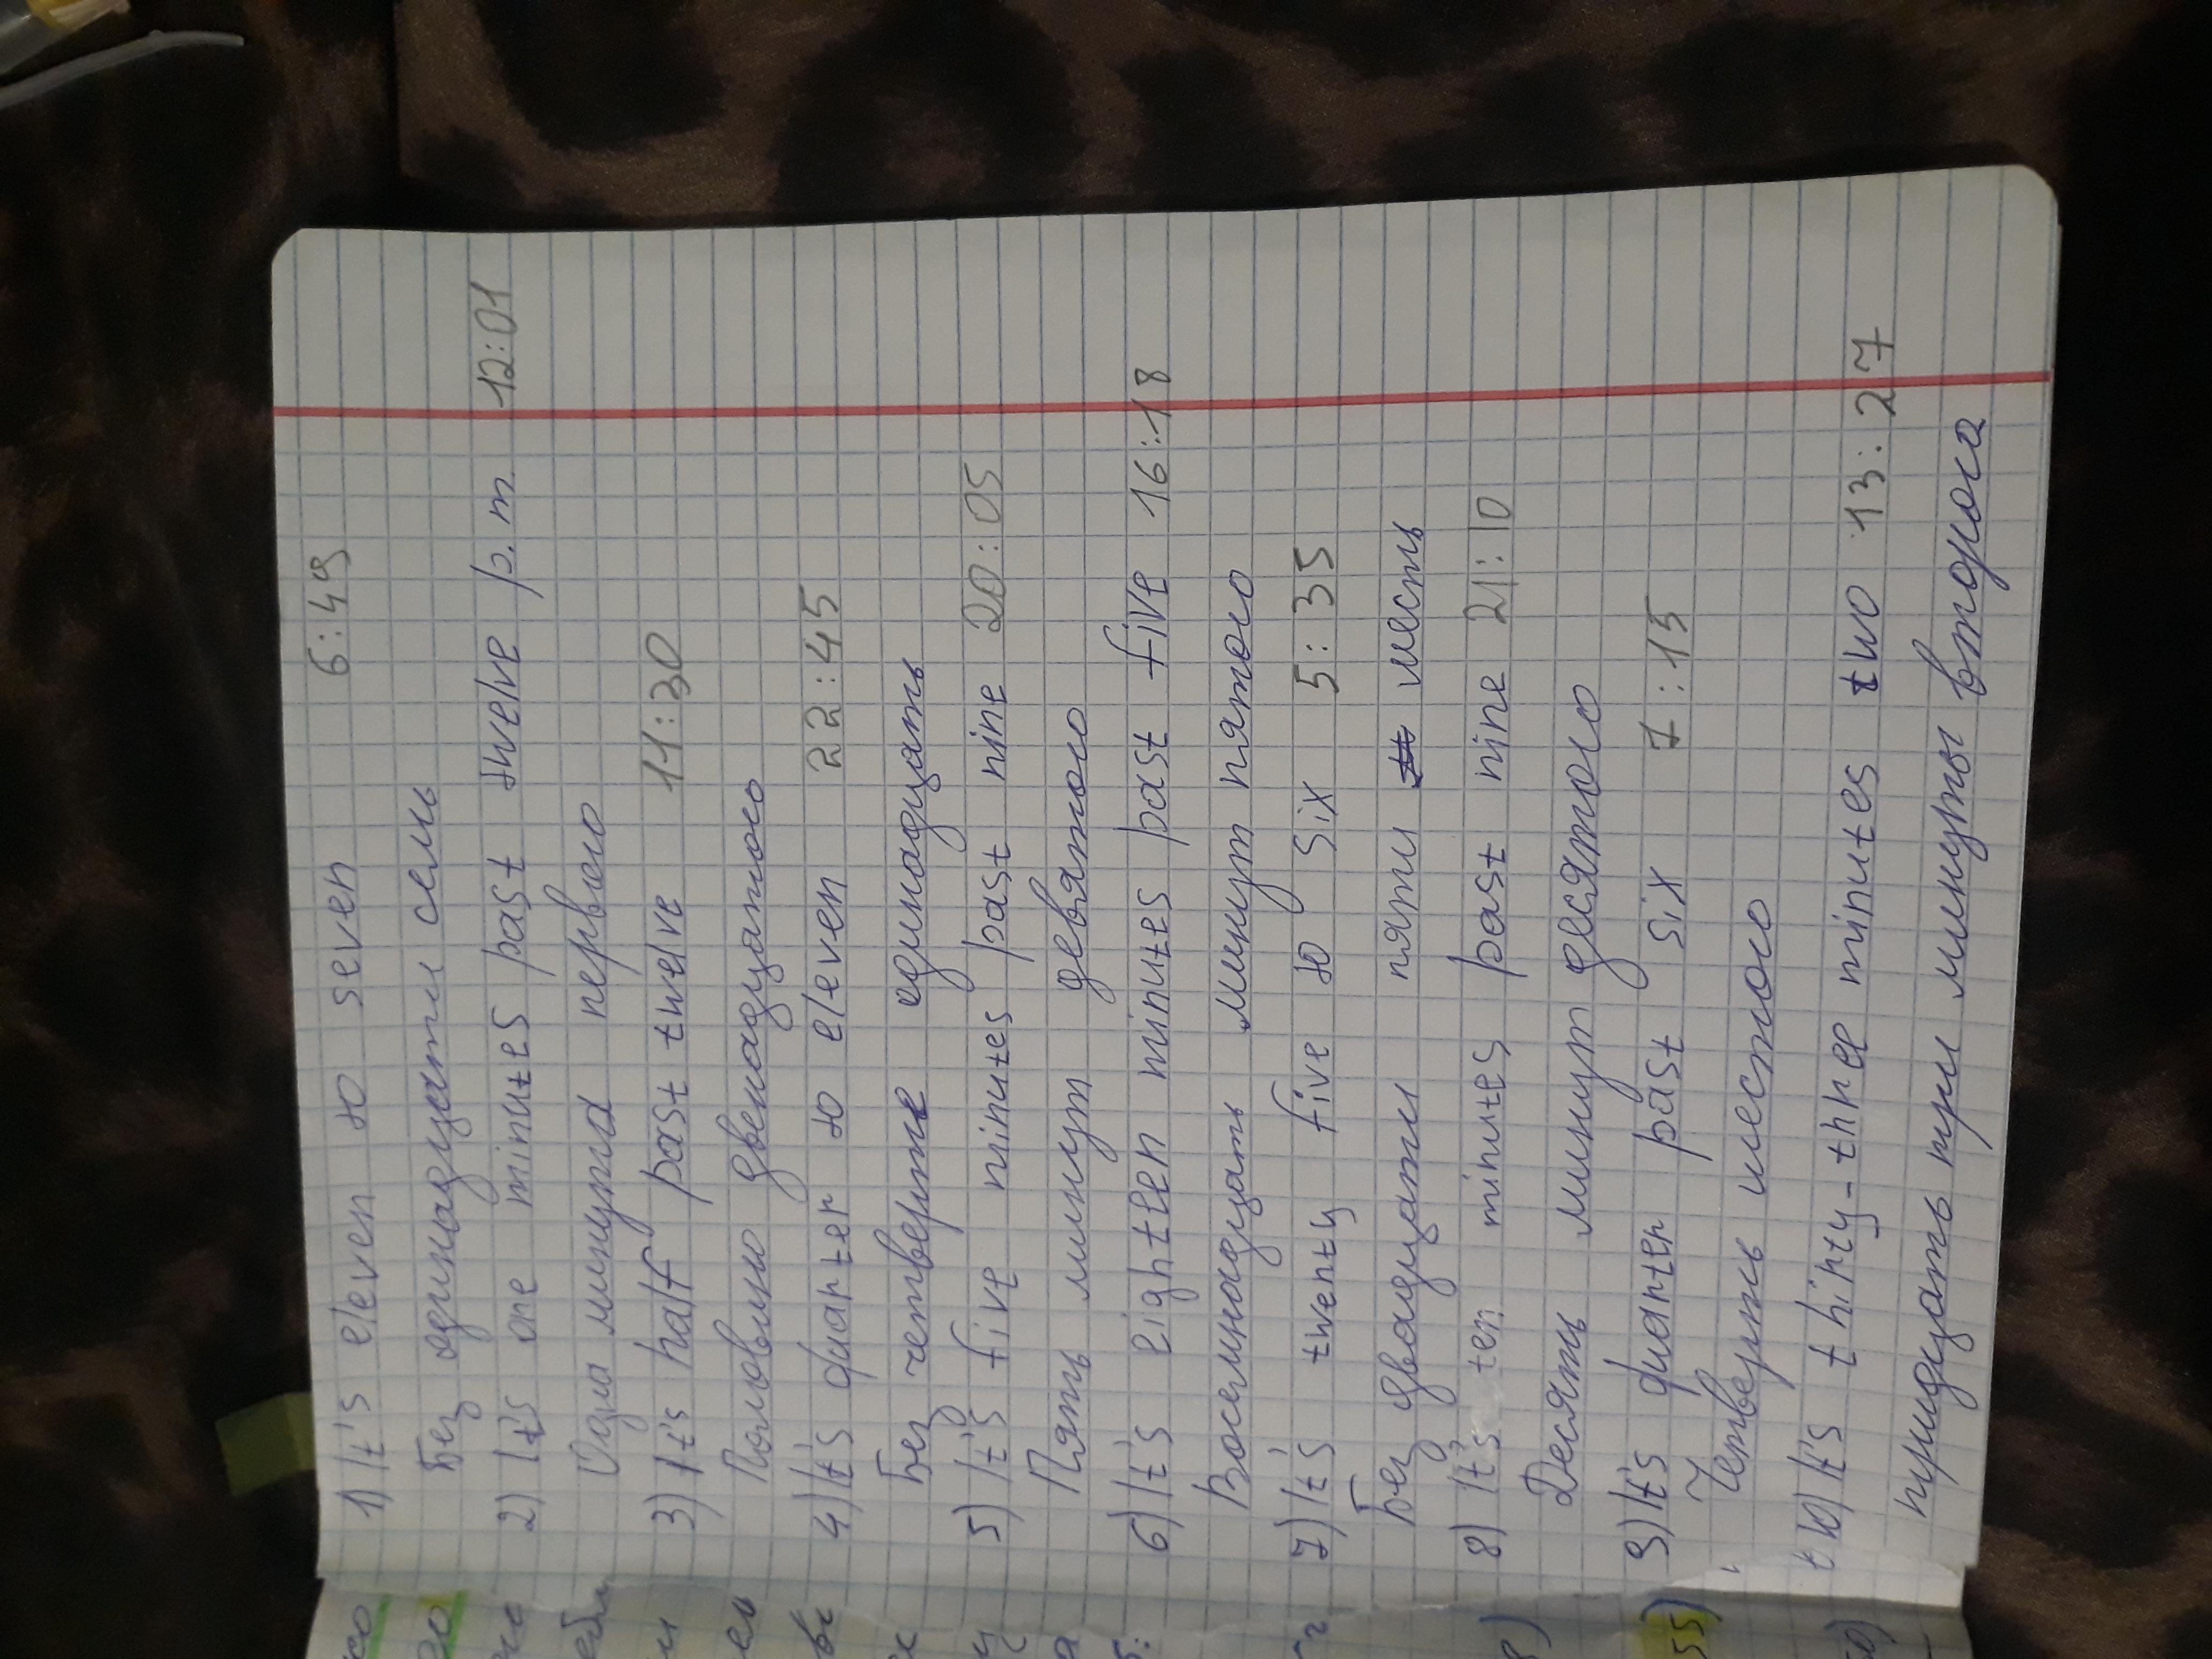 1) It's eleven to seven 6:49
Без одинадцати семь
2) It's one minutes past twelve p.m. 12:01
Одна минута первого
3) It's half past twelve 11:30
Половино двенадцатого
4) It's quarter to eleven 22:45
Без четверти одинадцать
5) It's five minutes past nine 20:05
Пять минут девятого
6) It's eighteen minutes past five 16:18
Восемнадцать минут пятого
7) It's twenty five to six 5:35
Без двадцати пяти шесть
8) It's ten minutes past nine 21:10
Десять минут десятого
9) It's quarter past six 7:15
Четверть шестого
10) It's thirty-three minutes two 13:27
тридцать три минуты второго